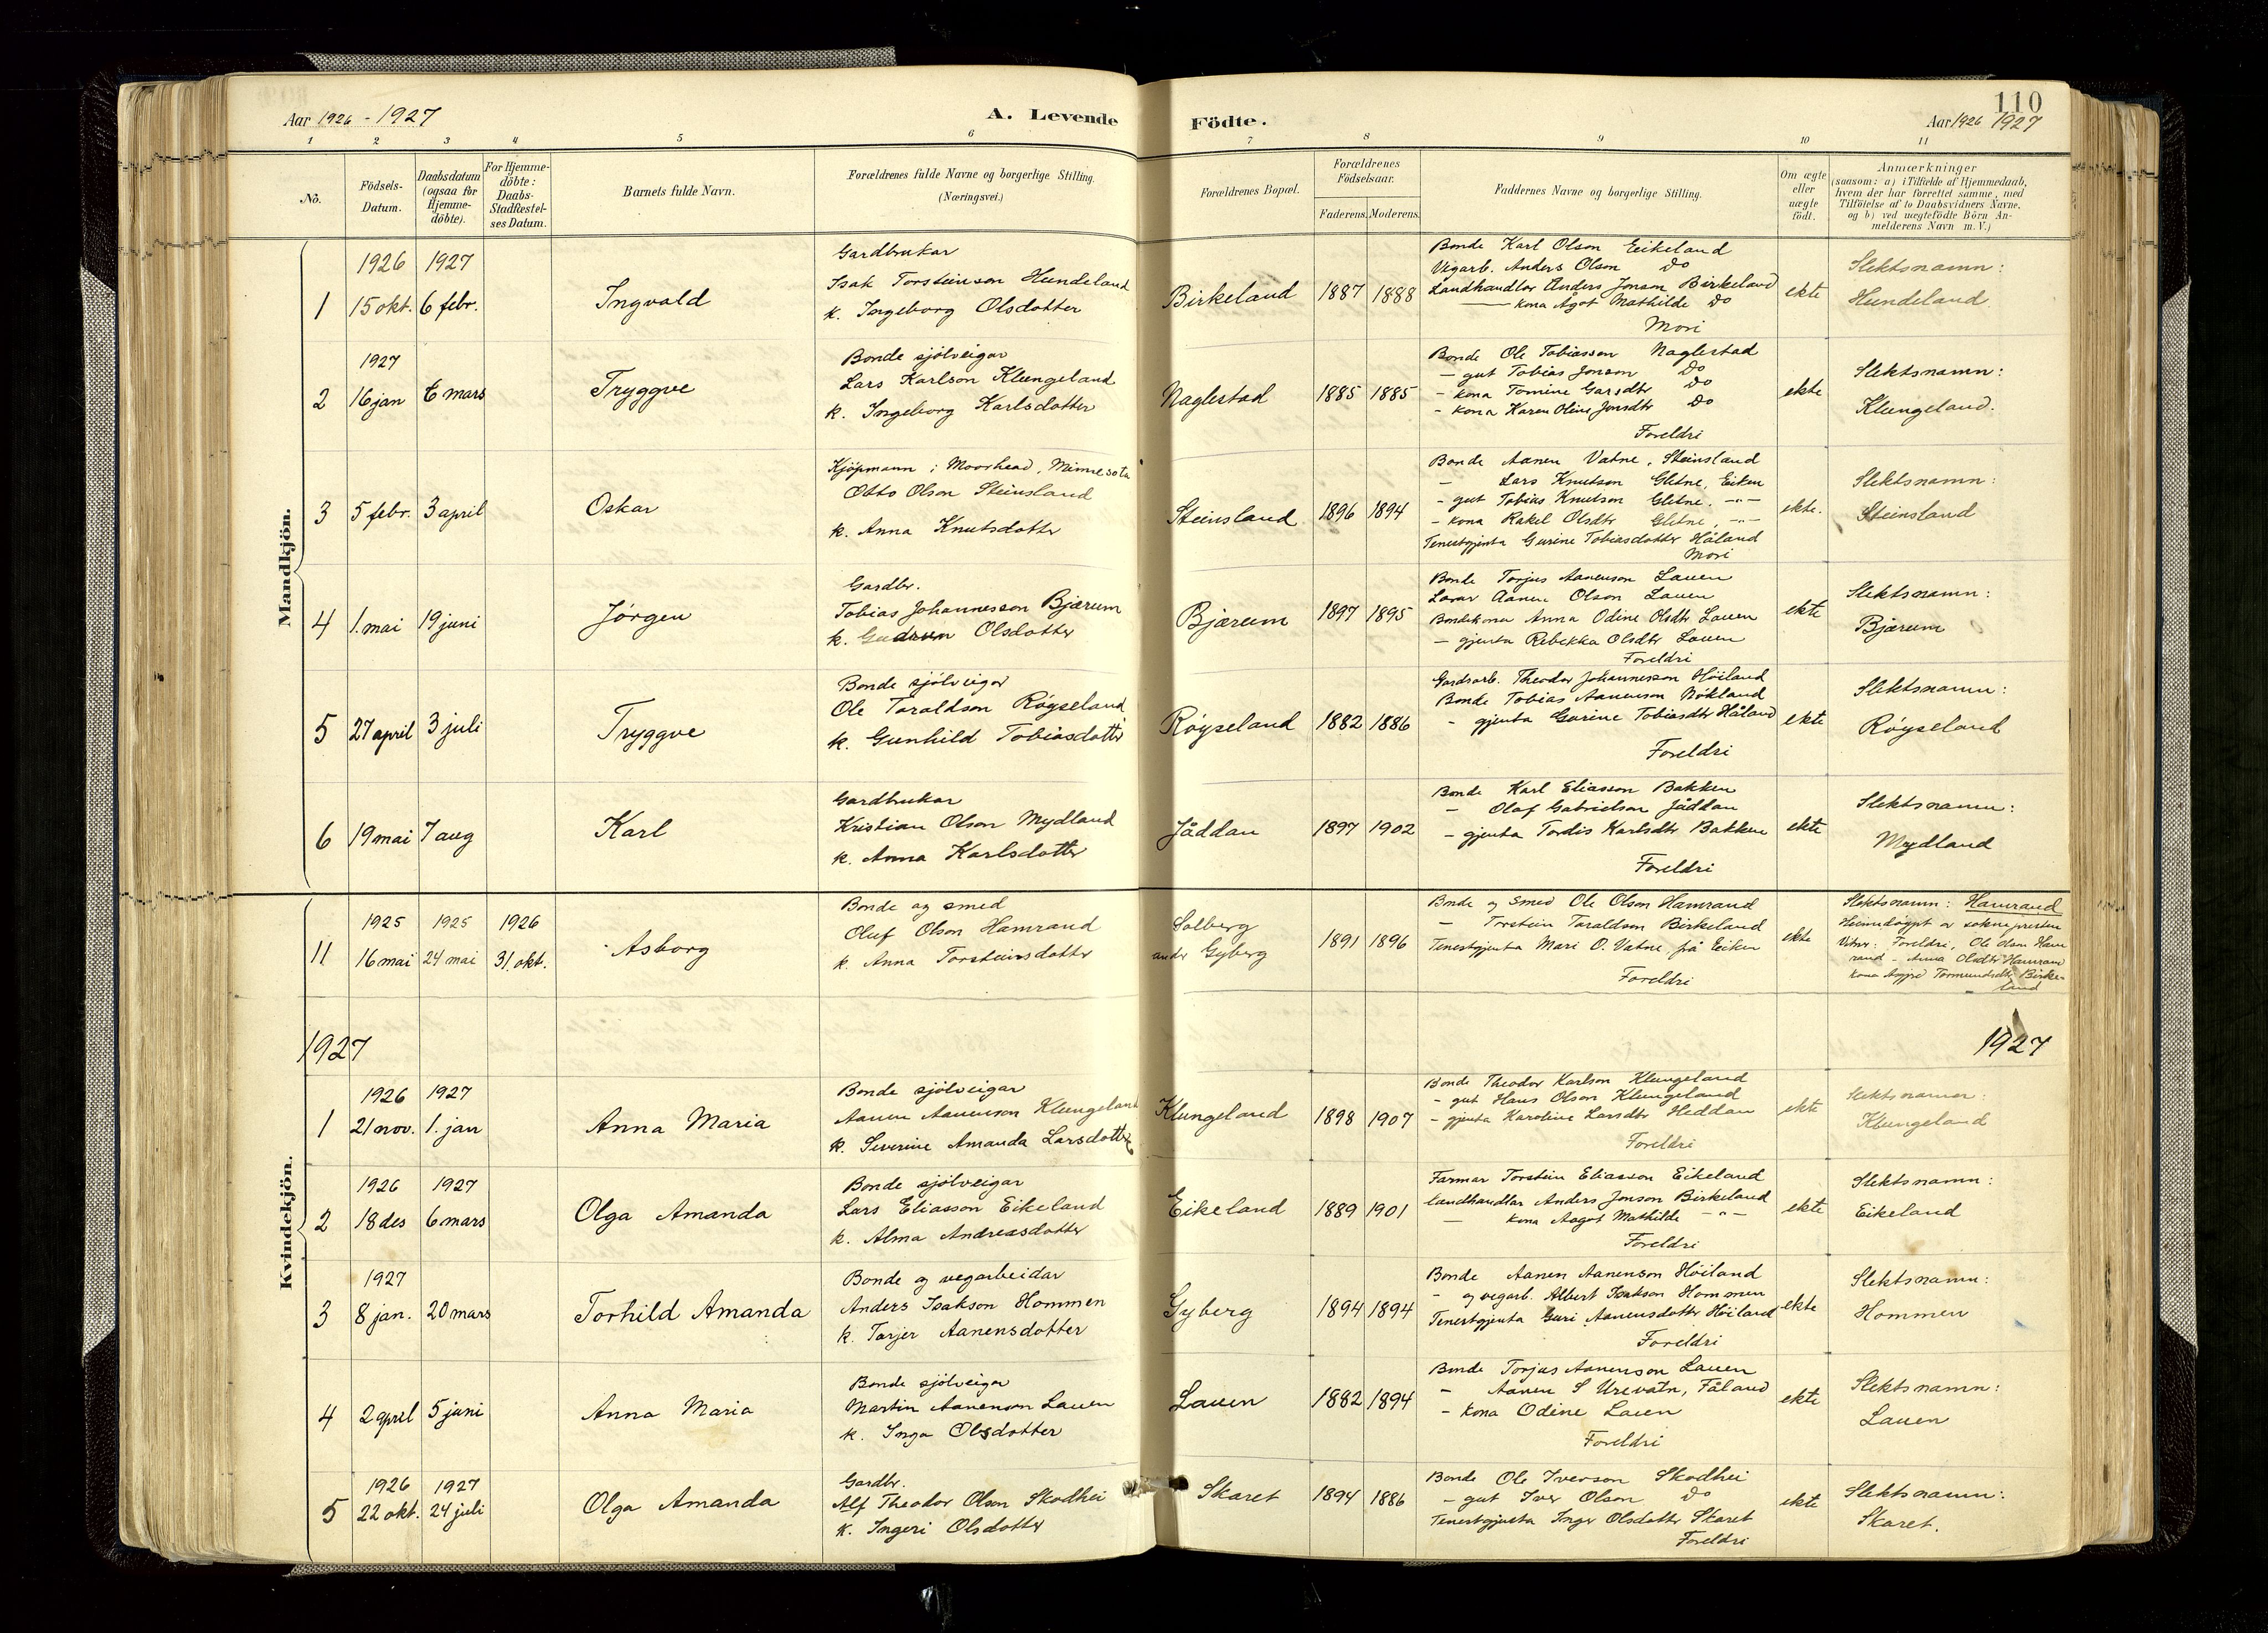 110
Aar 1926 - 1927
A. Levende
Födte.
Aar 1926 1927
1 2 3 4 5 6 7 8 9 10 11
No.
Födsels-Datum.
Daabsdatum (ogsaa for Hjemme-döbte).
For Hjemme-döbte: Daabs-Stadfæstel-ses Datum.
Barnets fulde Navn.
Forældrenes fulde Navne og borgerlige Stilling.
(Næringsvei.)
Forældrenes Bopæl.
Forældrenes Födselsaar.
Faderens. Moderens.
Faddernes Navne og borgerlige Stilling.
Om ægte eller uægte födt.
Anmærkninger
(saasom: a) i Tilfælde af Hjemmedaab,
hvem der har forrettet samme, med
Tilföielse af to Daabsvidners Navne,
og b) ved uægtefödte Börn An-
melderens Navn m. V.)
Mandkjön.
1926 1927
1 15 okt. 6 febr.
Ingvald
Gardbrukar
Isak Torsteinson Hundeland
k. Ingeborg Olsdotter
Birkeland
1887 1888
Bonde Karl Olson Eeikeland
Vegarb. Anders Olson Do
Landhandlar Anders Jonson Birkeland
— kona Ågot Mathilde Do
Mori
ekte
Slektsnamn:
Hundeland.
1927
2 16 jan 6 mars
Tryggve
Bonde sjölveigar
Lars Karlson Klungeland
k. Ingeborg Karlsdotter
Naglestad
1885 1885
Bonde Ole Tobiasson Naglestad
- gut Tobias Jonson Do
- kona Tomine Garsdtr Do
- kona Karen Oline Jonsdtr Do
Foreldri
ekte
Slektsnamn:
Klungeland.
3 5 febr. 3 april
Oskar
Kjöpmann i Moorhead, Minnesota
Otto Olson Steinsland
k. Anna Knutsdotter
Steinsland
1896 1894
Bonde Aanen Vatne, Steinsland
- Lars Knutson Gletne, Eiken
- gut Tobias Knutson Gletne. -"-
- kona Rakel Olsdtr Gletne, -"-
Tenestgjenta Gurine Tobiasdotter Håland
Mori
ekte.
Slektsnamn:
Steinsland
4 1. mai 19 juni
Jörgen
Gardbr.
Tobias Johannesson Bjærum
k. Gudrun Olsdotter
Bjærum
1897 1895
Bonde Torjus Aanenson Lauen
Lærar Aanen Olson Lauen
Bondekona Anna Odine Olsdtr Lauen
- gjenta Rebekka Olsdtr Lauen
Foreldri
ekte
Slektsnamn:
Bjærum
5 27 april 3 juli
Tryggve
Bonde sjölveigar
Ole Taraldson Röyseland
k. Gunhild Tobiasdotter
Röyseland
1882 1886
Gardsarb. Theodor Johannesson Höiland
Bonde Tobias Aanenson Nökland
- gjenta Gurine Tobiasdtr Håland
Foreldri
ekte
Slektsnamn:
Röyseland
6 19 mai 7 aug
Karl
Gardbrukar
Kristian Olson Mydland
k. Anna Karlsdotter
Jåddan
1897 1902
Bonde Karl Eliasson Bakken
- Olaf Gabrielson Jåddan
- gjenta Tordis Karlsdtr Bakken
Foreldri
ekte
Slektsnamn:
Mydland
Kvindekjön.
1925 1925 1926
11 16 mai 24 mai 31. okt.
Asborg
Bonde og smed
Oluf Olson Hamrand
k. Anna Torsteinsdotter
Solberg
under Gyberg
1891 1896
Bonde og Smed Ole Olson Hamrand
- Torstein Taraldson Birkeland
Tenestgjenta Mari O. Vatne, frå Eiken
Foreldri
ekte
Slektsnamn: Hamrand
Heimdöypt av soknepresten
Vitner: Foreldri, Ole Olson Ham
rand - Anna Olsdtr Hamrand
kona Tormundsdtr Birke-
land
1927
1927
1926 1927
1 21 nov. 1. jan
Anna Maria
Bonde sjölveigar
Aanen Aanenson Klungeland
k. Severine Amanda Larsdotter
Klungeland
1898 1907
Bonde Theodor Karlson Klungeland
- gut Hans Olson Klungeland
- gjenta Karoline Larsdtr Heddan
Foreldri
ekte
Slektsnamn:
Klungeland
1926 1927
2 18 des 6 mars
Olga Amanda
Bonde sjölveigar
Lars Eliasson Eikeland
k. Alma Andreasdotter
Eikeland
1889 1901
Farmar Torstein Eliasson Eikeland
landhandlar Anders Jonson Birkeland
— kona Aagot Mathilde -"-
Foreldri
ekte
Slektsnamn:
Eikeland
1927
3 8 jan. 20 mars
Torhild Amanda
Bonde og vegarbeidar
Anders Isakson Hommen
k. Tarjer Aanensdotter
Gyberg
1894 1894
Bonde Aanen Aanenson Höiland
- og vegarb. Albert Isakson Hommen
Tenestgjenta Guri Aanensdotter Höiland
Foreldri
ekte
Slektsnamn:
Hommen
4 2 april 5 juni
Anna Maria
Bonde sjölveigar
Martin Aanenson Lauen
k. Inga Olsdotter
Lauen
1882 1894
Bonde Torjus Aanenson Lauen
- Aanen S Urevatn, Fåland
- kona Odine Lauen
Foreldri
ekte
Slektsnamn:
Lauen
1926 1927
5 22 okt. 24 juli
Olga Amanda
Gardbr.
Alf Theodor Olson Skodhei
k. Ingeri Olsdotter
Skaret
1894 1886
Bonde Ole Iverson Skodhei
- gut Iver Olson Do
Tenestgjenta Inger Olsdotter Skaret
Foreldri
ekte
Slektsnamn:
Skaret.